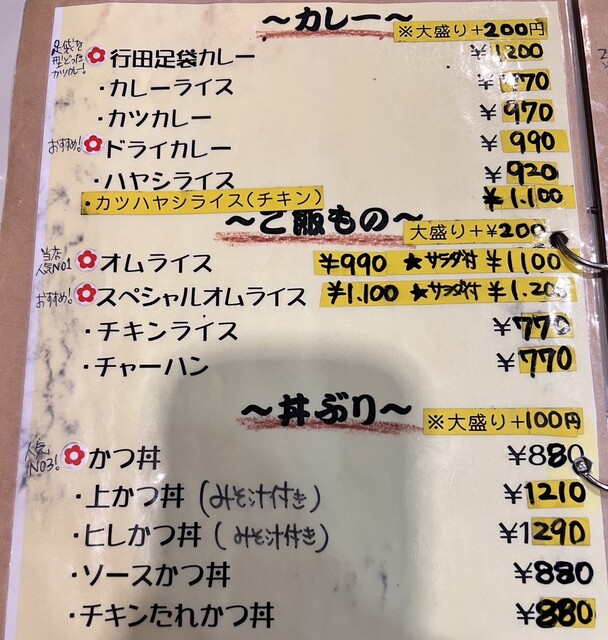 ～カレー～ ※大盛り+200円
足袋を型どったカツカレー! 行田足袋カレー ¥1200
・カレーライス ¥770
・カツカレー ¥970
おすすめ! ドライカレー ¥990
・ハヤシライス ¥920
・カツハヤシライス(チキン) ¥1.100
～ご飯もの～ 大盛り+¥200
当店人気NO1 オムライス ¥990 ★サラダ付 ¥1100
おすすめ! スペシャルオムライス ¥1.100 ★サラダ付 ¥1.200
・チキンライス ¥770
・チャーハン ¥770
～丼ぶり～ ※大盛り+100円
人気NO3! かつ丼 ¥880
・上かつ丼 (みそ汁付き) ¥1210
・ヒレかつ丼 (みそ汁付き) ¥1290
・ソースかつ丼 ¥880
・チキンたれかつ丼 ¥880